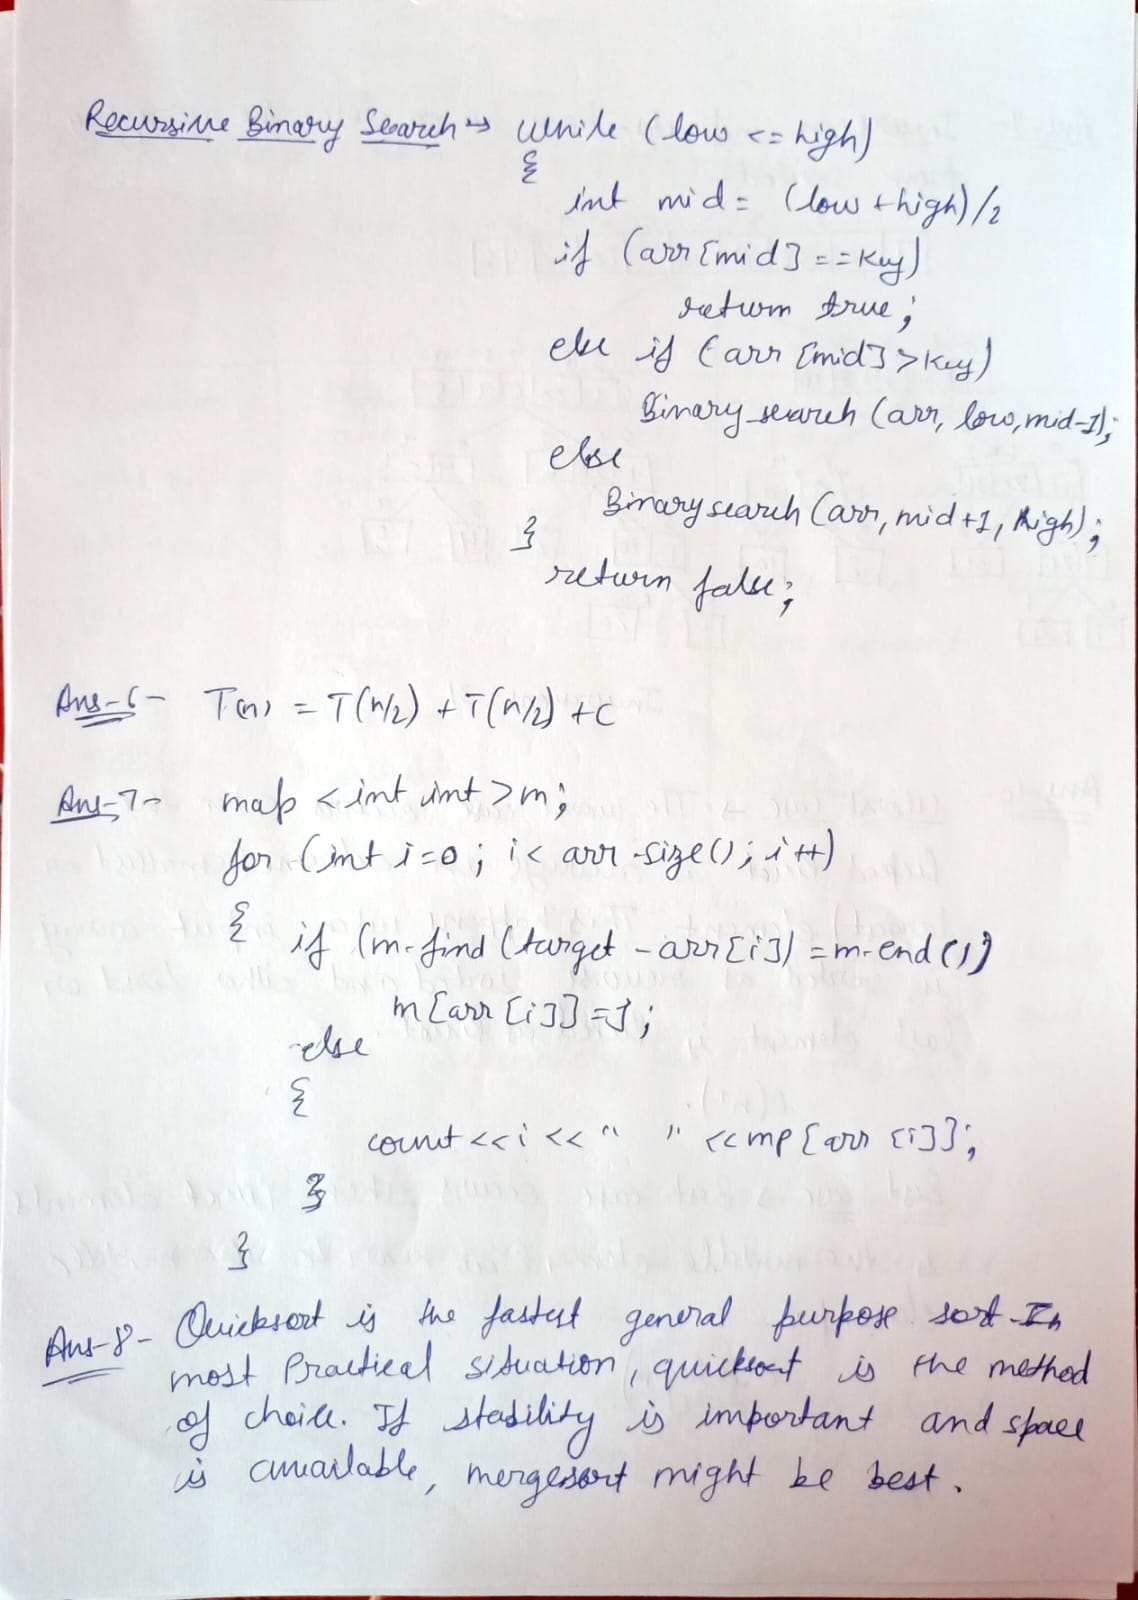 Recursive Binary Search → while (low <= high)
{
int mid = (low + high)/2
if (arr [mid] == Key)
return true;
else if (arr [mid] > Key)
Binary_search (arr, low, mid-1);
else
Binary search (arr, mid+1, high);
}
return false;
Ans-6- T(n) = T(n/2) + T(n/2) + C
Ans-7- map < int int > m;
for (int i=0; i< arr.size(); i++)
{
if (m.find (target - arr[i]) = m.end())
m[arr [i]] = 1;
else
{
count << i << " " << mp [arr [i]];
}
}
Ans-8- Quicksort is the fastest general purpose sort. In
most Practical situation, quicksort is the method
of choice. If stability is important and space
is available, mergesort might be best.